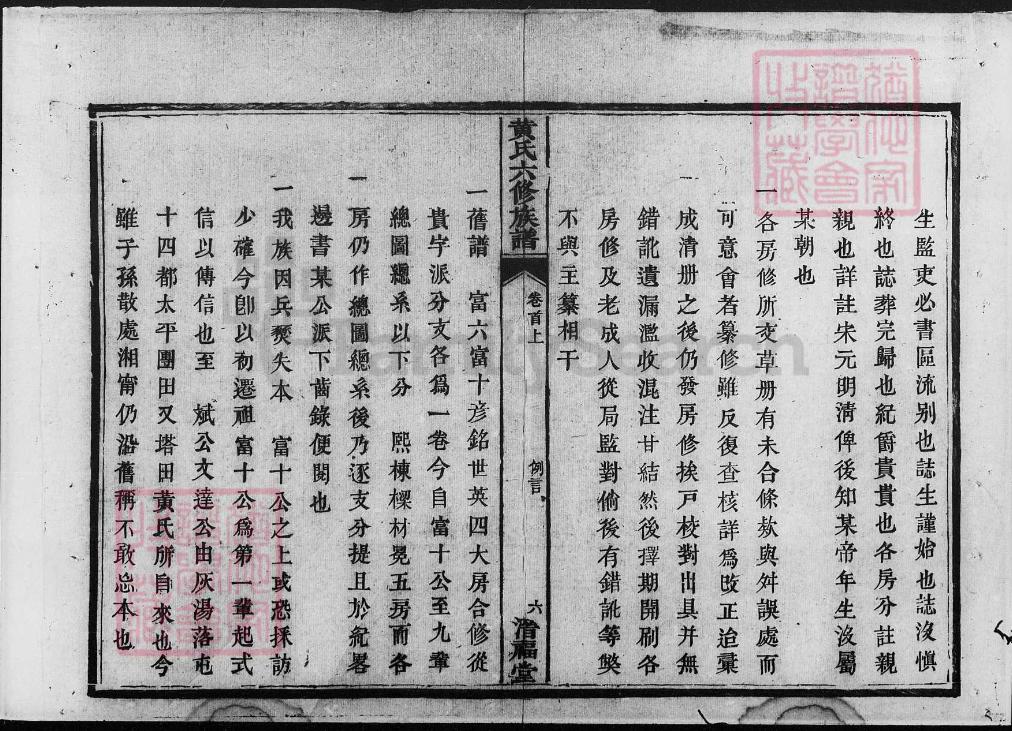 生監吏必書區流别也誌生謹始也誌沒慎
終也誌葬完歸也紀爵貴貴也各房分註親
親也詳註宋元明清俾後知某帝年生沒屬
某朝也
一各房修所交草册有未合條欵與舛誤處而
可意會者纂修雖反復查核詳爲改正迨彚
成清册之後仍發房修挨戸校對出具并無
錯訛遺漏濫收混注甘結然後擇期開刷各
房修及老成人從局監對倘後有錯訛等獘
不與主纂相干
黃氏六修族譜 卷首上 例言 六 滑福堂
一舊譜 富六富十彦銘世英四大房合修從
貴字派分支各爲一卷今自富十公至九輩
總圖總系以下分 熙棟樑材晃五房而各
一房仍作總圖總系後乃逐支分提且於紀畧
邊書某公派下齒錄便閱也
一我族因兵燹失本 富十公之上或恐採訪
少確今卽以初遷祖富十公爲第一輩起式
信以傳信也至 斌公文達公由灰湯落屯
十四都太平團田又塔田黃氏所自來也今
雖子孫散處湘甯仍沿舊稱不敢忘本也